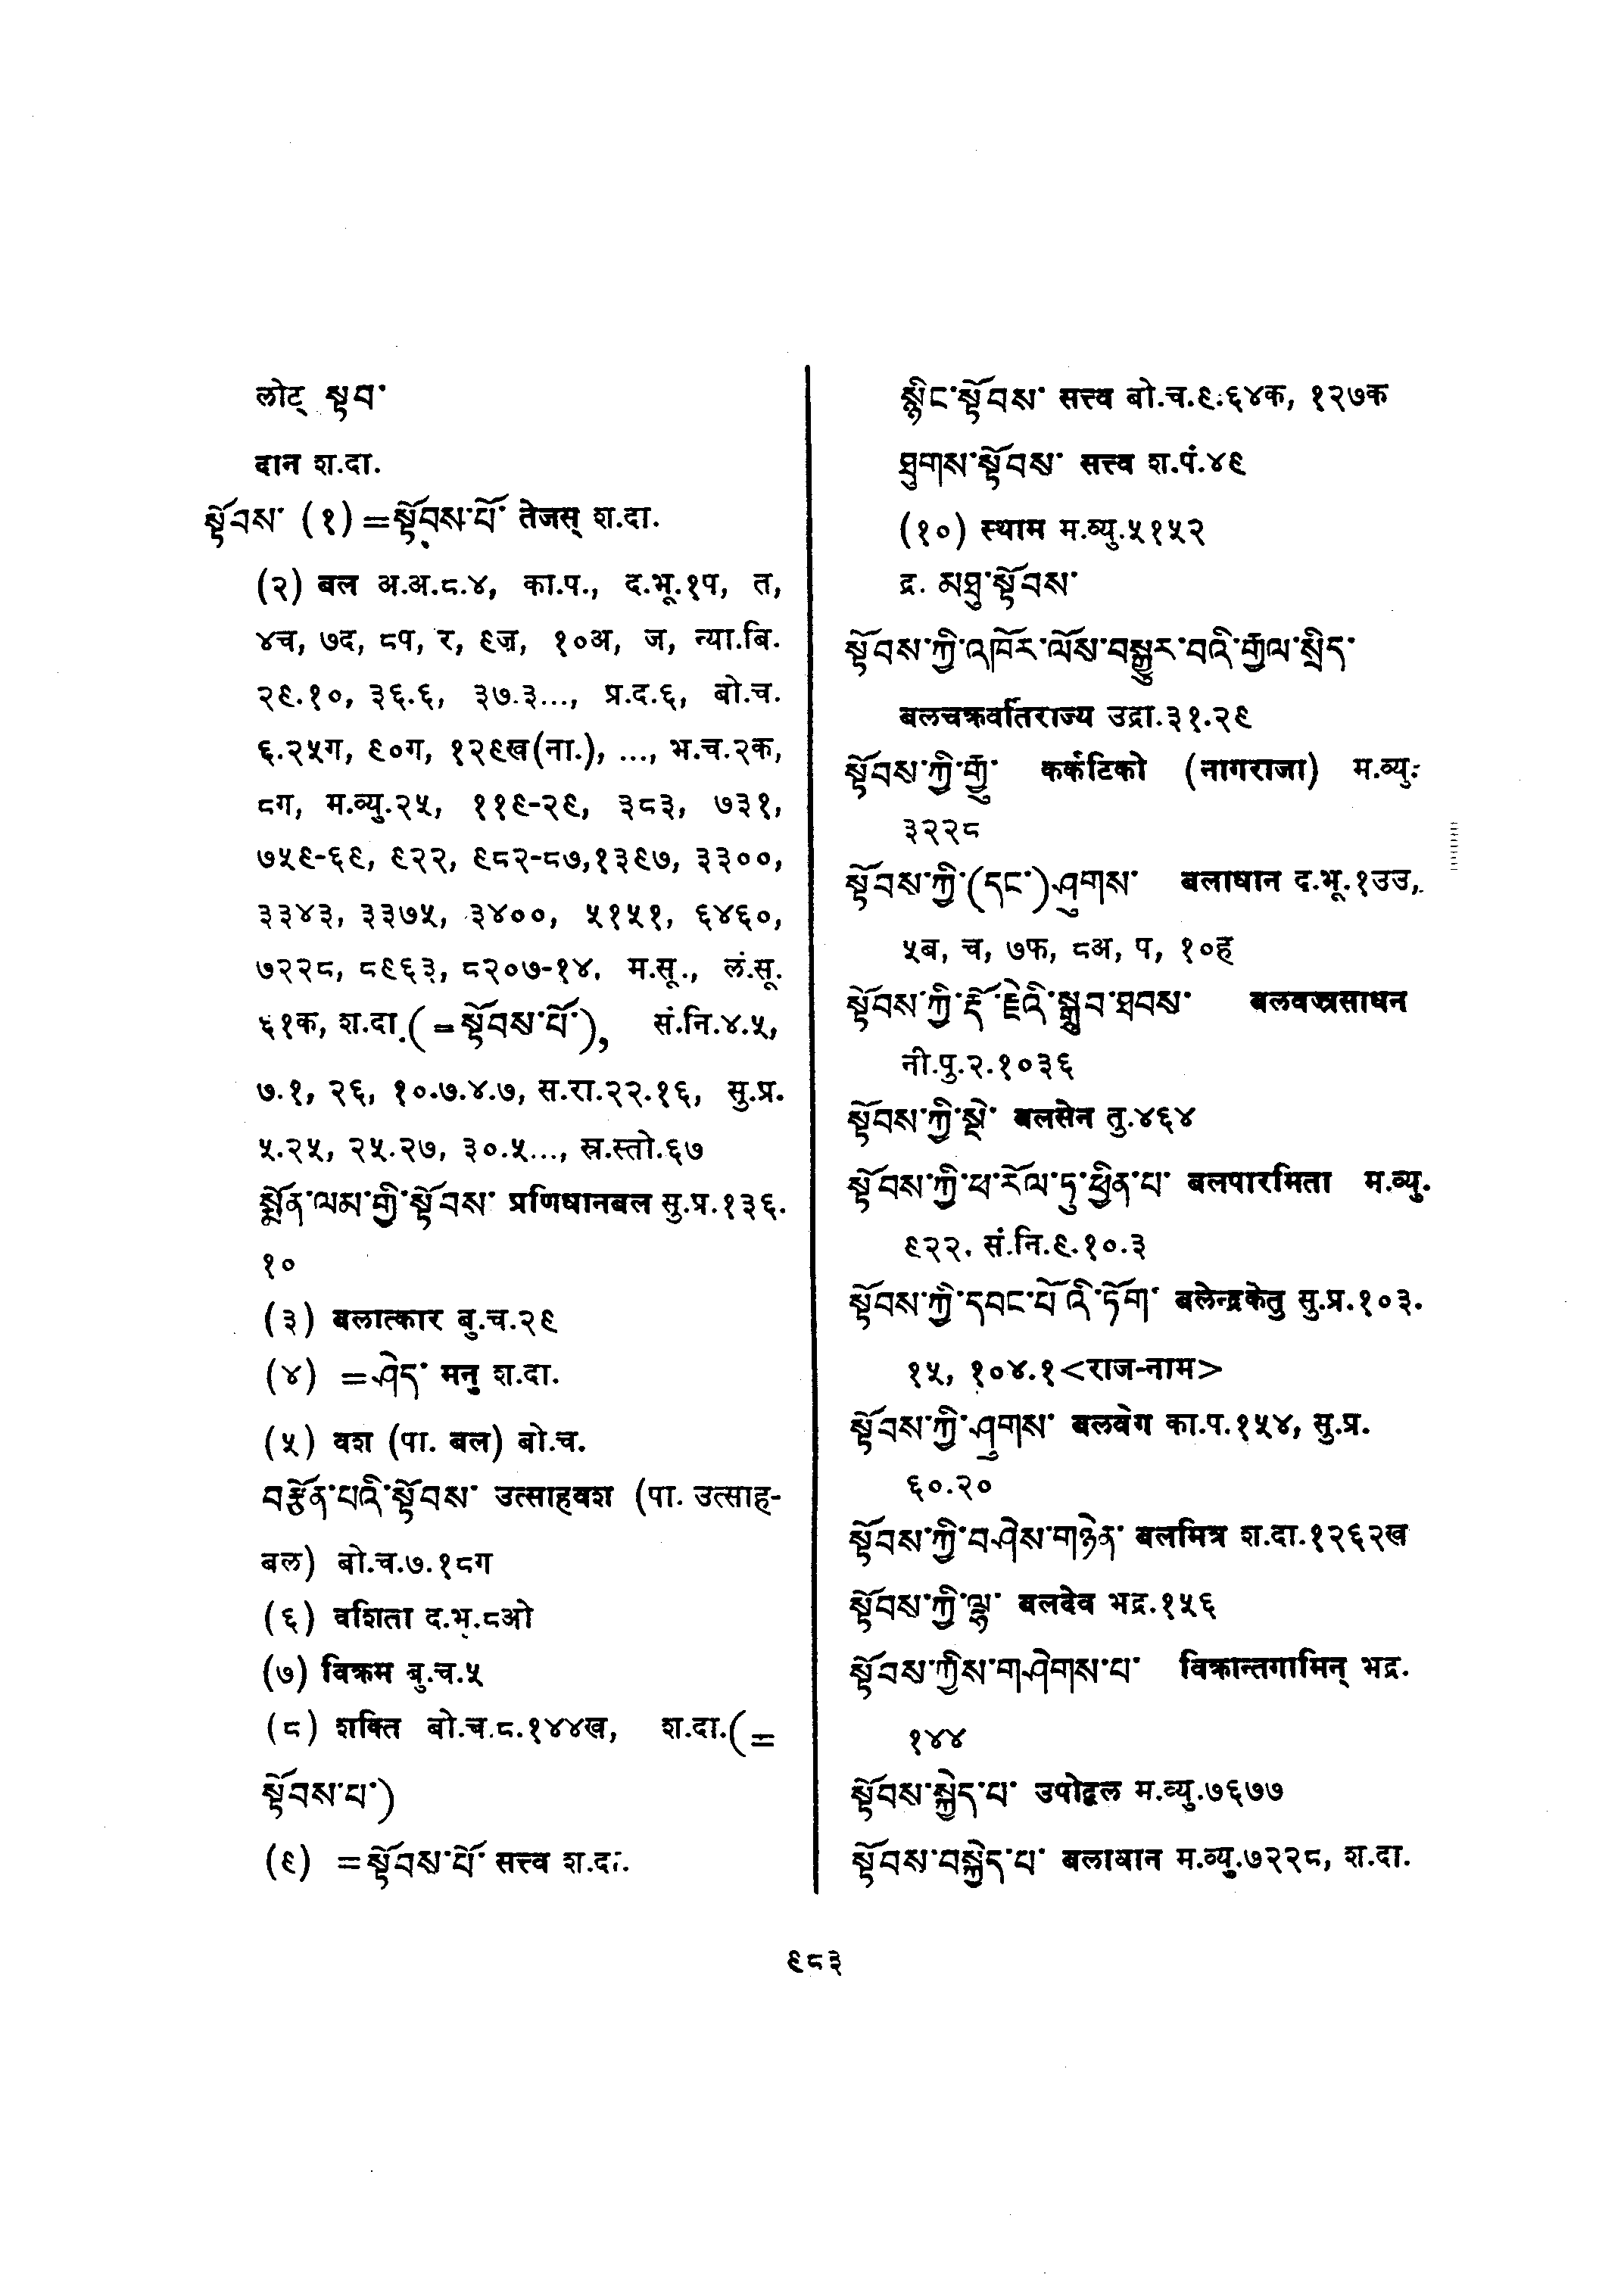 लोट् སྟབ་
दान श.दा.
སྟོབས་ (१) =སྟོབས་པོ་ तेजस् श.दा.
(२) बल अ.अ.८.४, का.प., द.भू.१प, त,
४च, ७द, ८प, र, ६ज्ञ, १०अ, ज, न्या.बि.
२९.१०, ३६.६, ३७.३..., प्र.द.६, बो.च.
६.२५ग, ९०ग, १२९ख(ना.), ..., भ.च.२क,
८ग, म.व्यु.२५, ११९-२९, ३८३, ७३१,
७५९-६९, ९२२, ९८२-८७,१३९७, ३३००,
३३४३, ३३७५, ३४००, ५१५१, ६४६०,
७२२८, ८९६३, ८२०७-१४, म.सू., लं.सू.
६१क, श.दा.(=སྟོབས་པོ་), सं.नि.४.५,
७.१, २६, १०.७.४.७, स.रा.२२.१६, सु.प्र.
५.२५, २५.२७, ३०.५..., स्र.स्तो.६७
སྨོན་ལམ་གྱི་སྟོབས་ प्रणिधानबल सु.प्र.१३६.
१०
(३) बलात्कार बु.च.२९
(४) =ཤེད་ मनु श.दा.
(५) वश (पा. बल) बो.च.
བརྩོན་པའི་སྟོབས་ उत्साहवश (पा. उत्साह-
बल) बो.च.७.१८ग
(६) वशिता द.भू.८ओ
(७) विक्रम बु.च.५
(८) शक्ति बो.च.८.१४४ख, श.दा.(=
སྟོབས་པ་)
(९) =སྟོབས་པོ་ सत्त्व श.दा.
སྙིང་སྟོབས་ सत्त्व बो.च.९.६४क, १२७क
ཐུགས་སྟོབས་ सत्त्व श.पं.४९
(१०) स्थाम म.व्यु.५१५२
द्र. མཐུ་སྟོབས་
སྟོབས་ཀྱི་འཁོར་ལོས་བསྒྱུར་བའི་རྒྱལ་སྲིད་
बलचक्रवर्तिराज्य उद्रा.३१.२९
སྟོབས་ཀྱི་རྒྱུ་ कर्कटिको (नागराजा) म.व्यु.
३२२८
སྟོབས་ཀྱི་(དང་)ཤུགས་ बलाधान द.भू.१उउ,
५ब, च, ७फ, ८अ, प, १०ह
སྟོབས་ཀྱི་རྡོ་རྗེའི་སྒྲུབ་ཐབས་ बलवज्रसाधन
नी.पु.२.१०३६
སྟོབས་ཀྱི་སྡེ་ बलसेन तु.४६४
སྟོབས་ཀྱི་ཕ་རོལ་ཏུ་ཕྱིན་པ་ बलपारमिता म.व्यु.
९२२. सं.नि.९.१०.३
སྟོབས་ཀྱི་དབང་པོའི་ཏོག་ बलेन्द्रकेतु सु.प्र.१०३.
१५, १०४.१<राज-नाम>
སྟོབས་ཀྱི་ཤུགས་ बलवेग का.प.१५४, सु.प्र.
६०.२०
སྟོབས་ཀྱི་བཤེས་གཉེན་ बलमित्र श.दा.१२६२ख
སྟོབས་ཀྱི་ལྷ་ बलदेव भद्र.१५६
སྟོབས་ཀྱིས་གཤེགས་པ་ विक्रान्तगामिन् भद्र.
१४४
སྟོབས་སྐྱེད་པ་ उपोद्बल म.व्यु.७६७७
སྟོབས་བསྐྱེད་པ་ बलाधान म.व्यु.७२२८, श.दा.
९८३